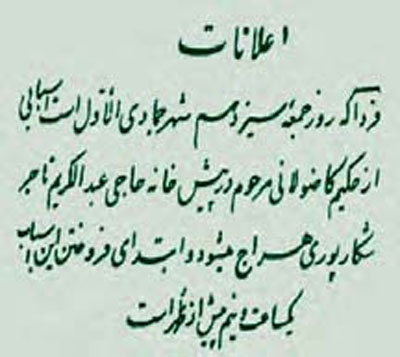 اعلانات
فردا که روز جمعهٔ سیزدهم شهر جمادی الاول است اسبابی
از حکیم کاضولانی مرحوم در پیش خانه حاجی عبدالکریم تاجر
شکارپوری هراج میشود و ابتدای فروختن این اسباب
یکساعت و نیم پیش از ظهر است